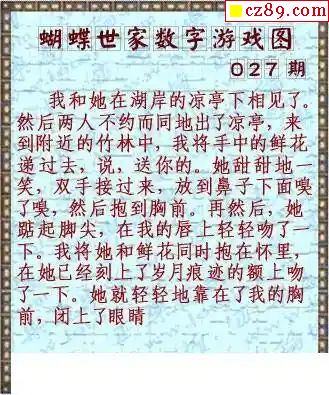 cz89.com
蝴蝶世家数字游戏图
027期
我和她在湖岸的凉亭下相见了。
然后两人不约而同地出了凉亭，来
到附近的竹林中，我将手中的鲜花
递过去，说，送你的。她甜甜地一
笑，双手接过来，放到鼻子下面嗅
了嗅，然后抱到胸前。再然后，她
踮起脚尖，在我的唇上轻轻吻了一
下。我将她和鲜花同时抱在怀里，
在她已经刻上了岁月痕迹的额上吻
了一下。她就轻轻地靠在了我的胸
前，闭上了眼睛